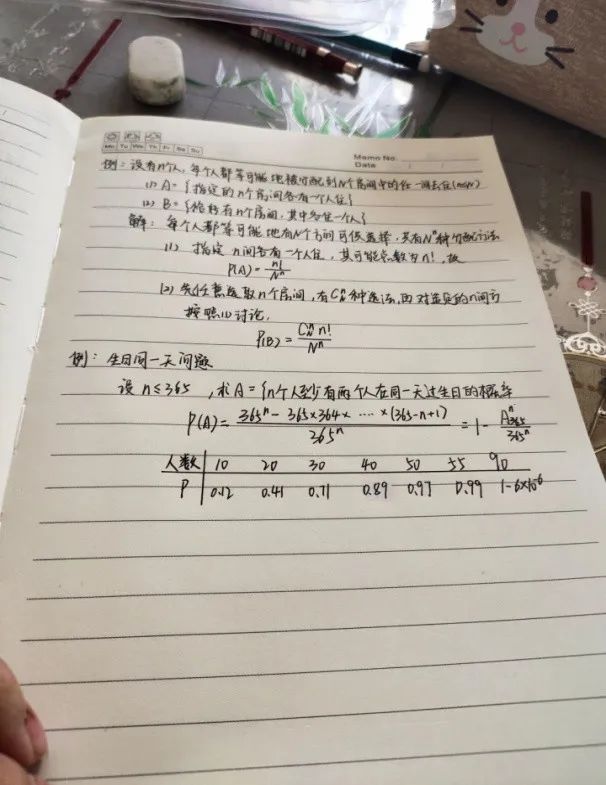 Mo Tu We Th Fr Sa Su
Memo No.
Date / /
例：设有n个人，每个人都等可能地被分配到N个房间中的任一间去住(n≤N)
(1) A={指定的n个房间各有一个人住}
(2) B={恰好有n个房间，其中各住一个人}
解：每个人都等可能地有N个方间可供选择，共有Nⁿ种分配方法
(1) 指定n间各有一个人住，其可能总数为n!，故
P(A)=n!/Nⁿ
(2) 先任意选取n个房间，有C_N^n种选法，而对选定的n间方
按照(1)讨论，
P(B)=C_N^n n!/Nⁿ
例：生日同一天问题
设 n≤365 ，求A={n个人至少有两个人在同一天过生日的概率
P(A)=(365ⁿ-365×364×····×(365-n+1))/365ⁿ=1-A_365^n/365ⁿ
人数 10 20 30 40 50 55 90
P 0.12 0.41 0.71 0.89 0.97 0.99 1-6×10⁻⁶